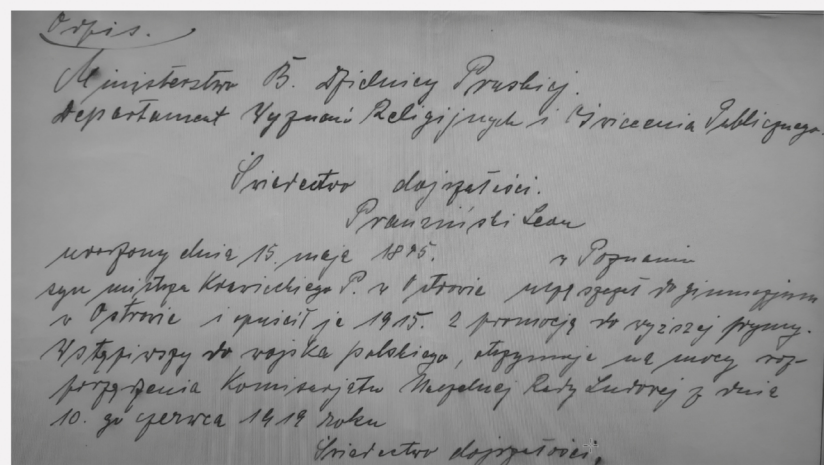 Odpis.
Ministerstwo B. Dzielnicy Pruskiej.
Departament Wyznań Religijnych i Oświecenia Publicznego.
Świadectwo dojrzałości.
Leon
urodzony dnia 15. maja w Poznaniu
syn mistrza Krawieckiego P. w Ostrowie uczęszczał do gimnazjum
w Ostrowie i opuścił je 1915. z promocją do wyższej prymy.
Wstąpiwszy do wojska polskiego, otrzymuje na mocy roz-
porządzenia Komisarjatu Naczelnej Rady Ludowej z dnia
10. go czerwca 1919 roku
Świadectwo dojrzałości,